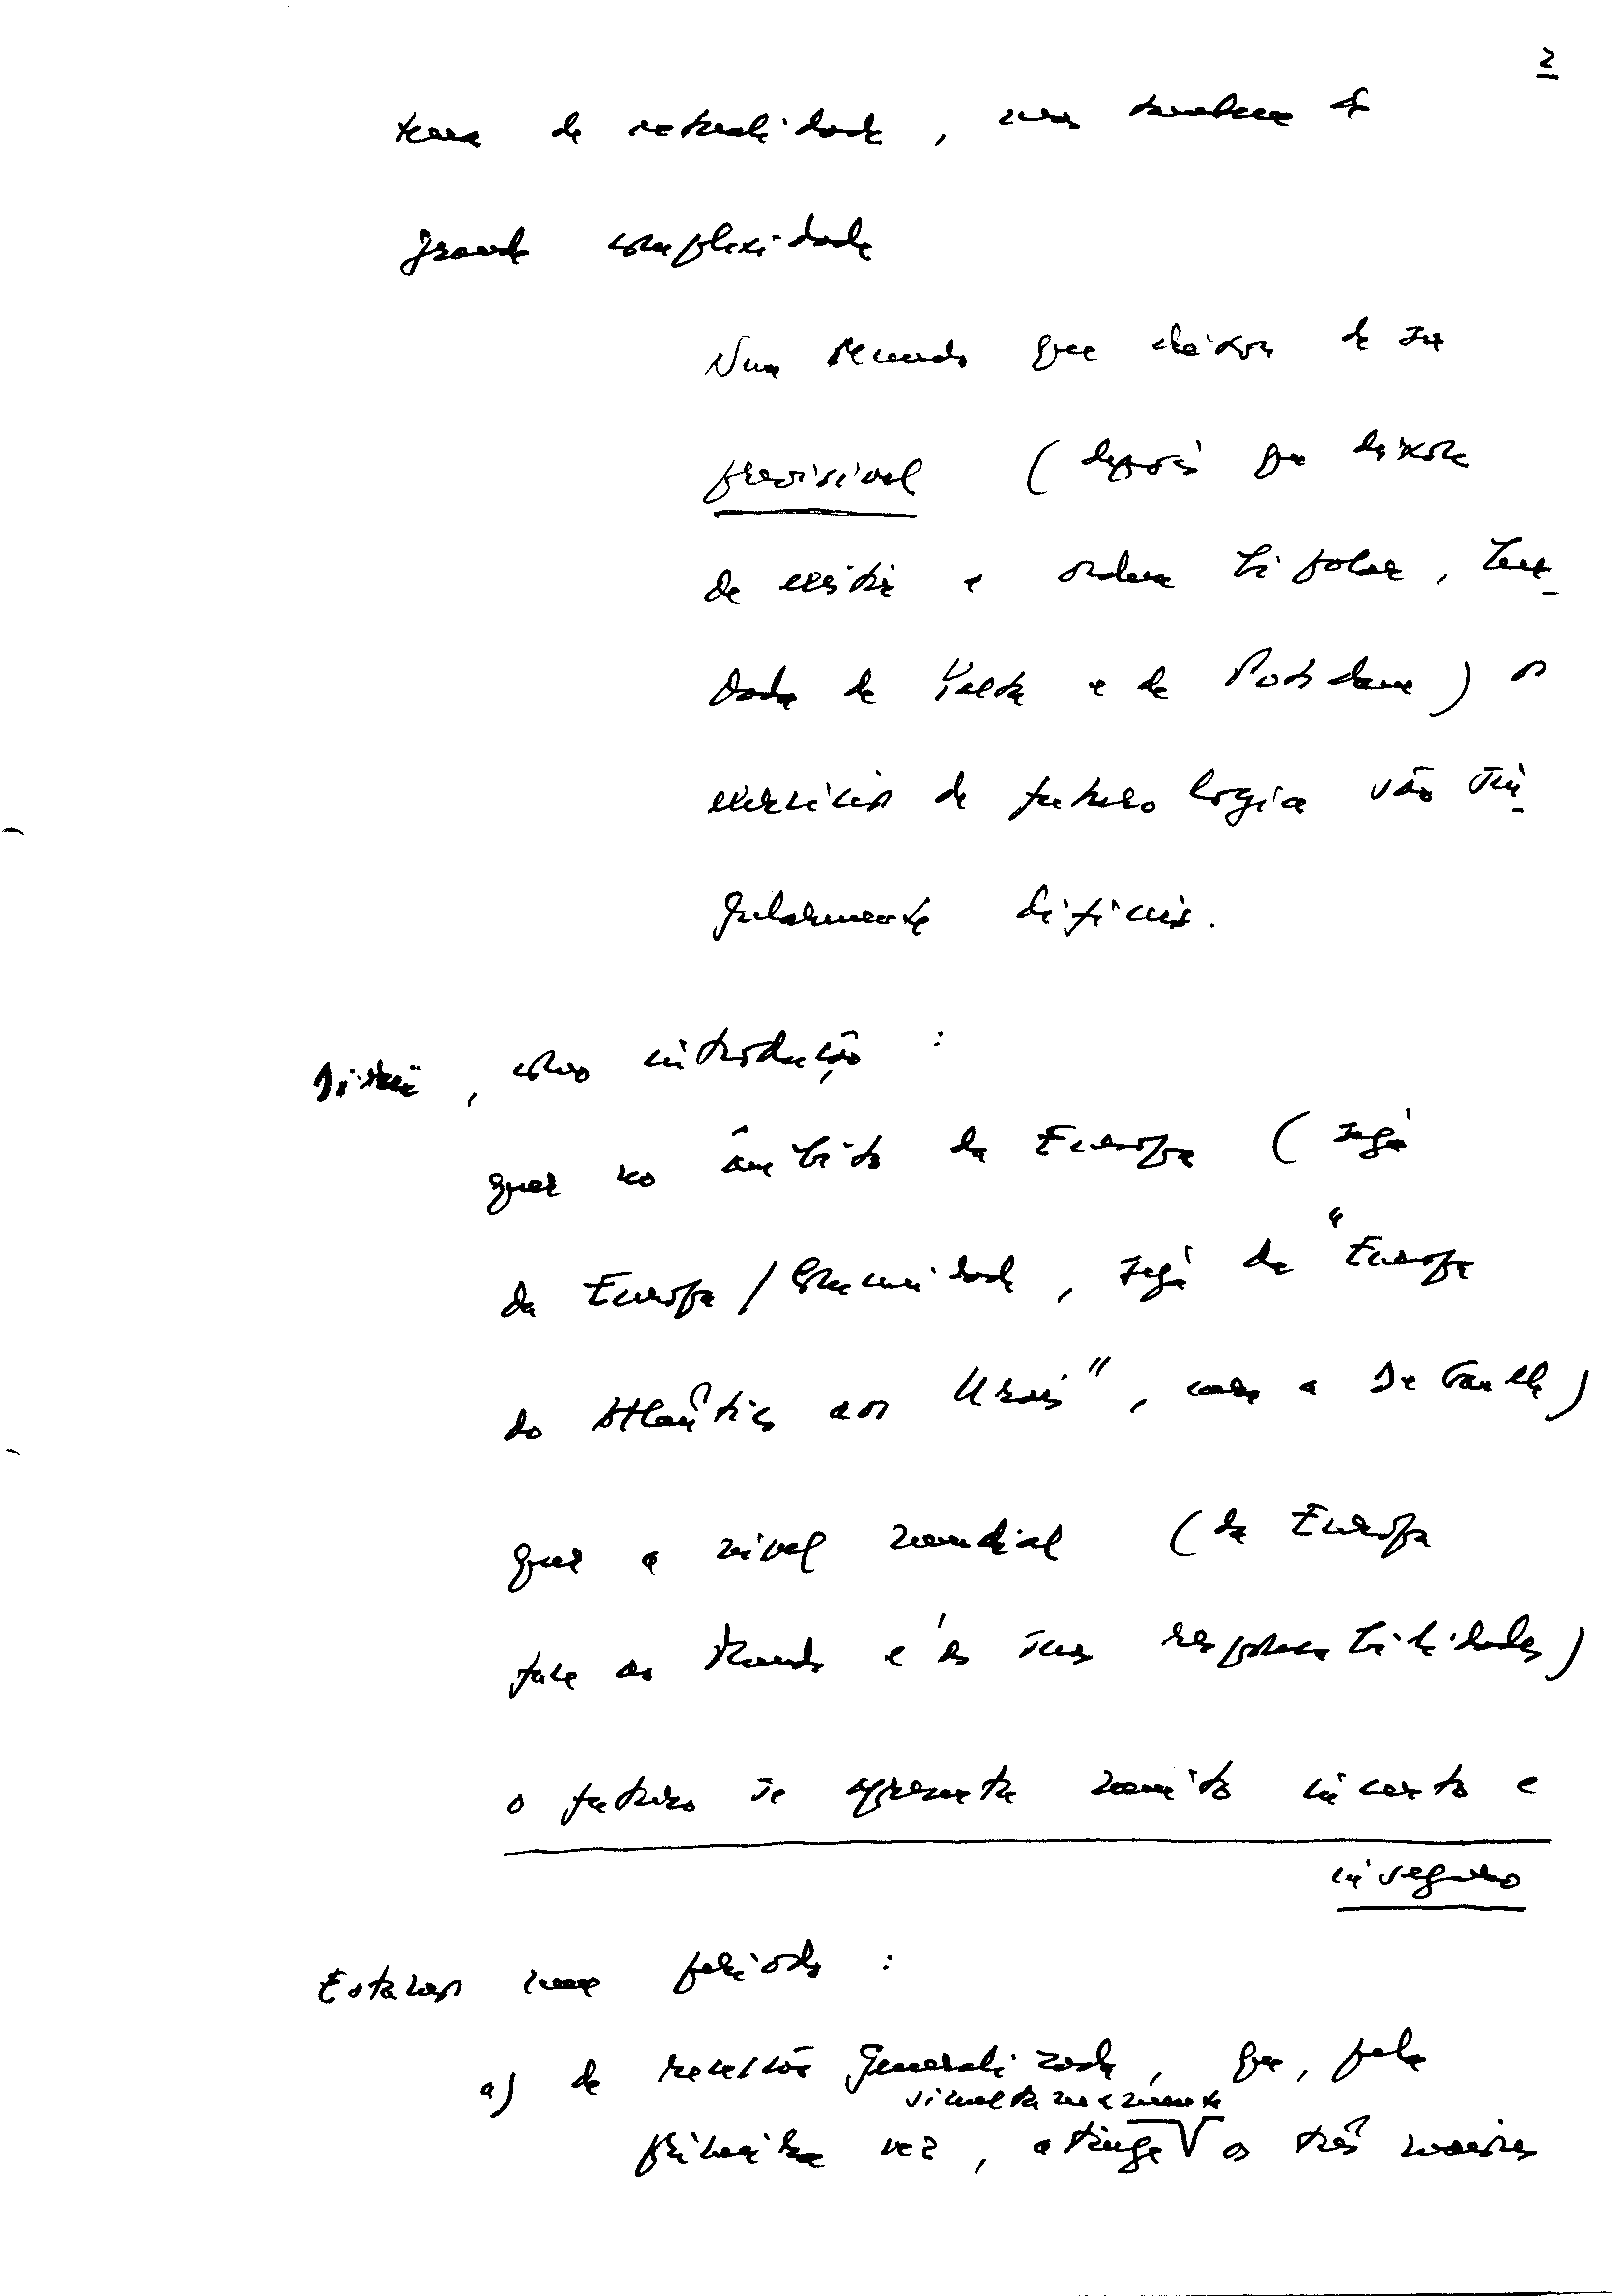 2
tema de actualidade, mas também de
grande complexidade
Num Mundo que deixou de ser
previsível (depois que deixou
de existir a ordem bipolar, her-
dada de Yalta e de Potsdam) os
exercícios de futurologia são sin-
gularmente difíceis.
Direi, como introdução :
quer no âmbito da Europa (seja
da Europa/Comunidade, seja da "Europa
do Atlântico aos Urais", cara a De Gaulle)
quer a nível mundial (da Europa
face ao Mundo e às suas responsabilidades)
o futuro se apresenta muito incerto e
inseguro
Estamos num período :
a) de recessão generalizada, que, pela
simultaneamente
primeira vez, atinge os três maiores